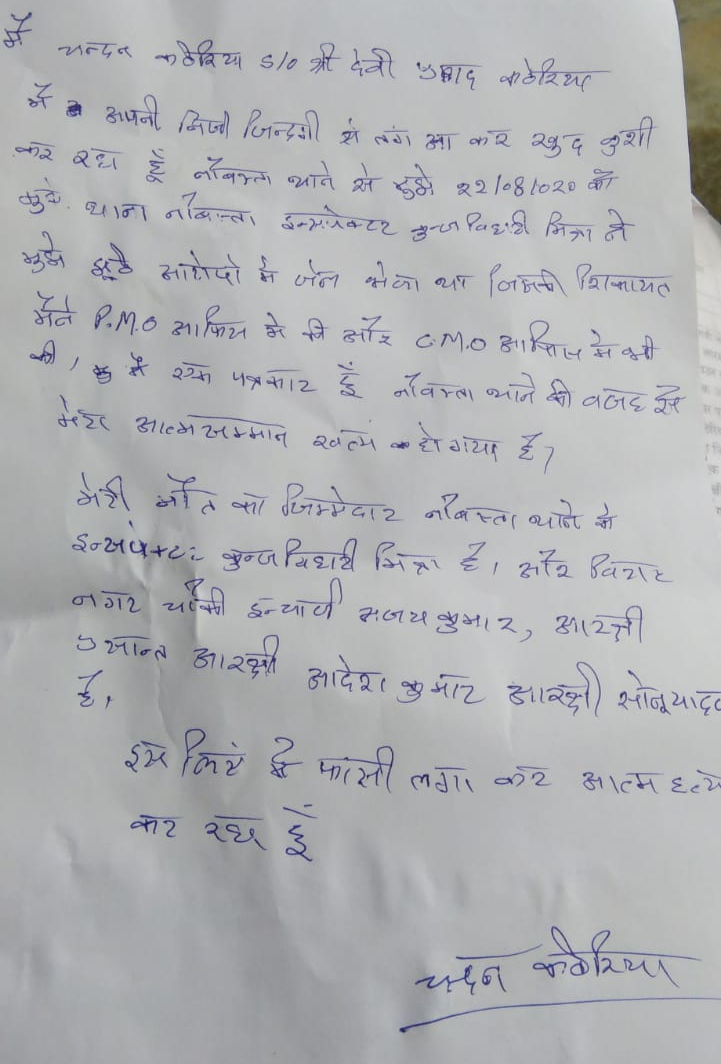 मैं चन्दन कठेरिया S/O श्री देवी प्रसाद कठेरिया
मैं अपनी निजी जिन्दगी से तंग आ कर खुद कुशी
कर रहा हूँ नौबस्ता थाने से मुझे 22/08/020 को
मुझे. थाना नौबस्ता इन्सपेक्टर कुन्ज विहारी मिश्रा ने
मुझे झूठे आरोपो मे जेल भेजा था जिसकी शिकायत
मैंने P.M.O आफिस मे की और C.M.O आफिस मे भी
की, मैं एक पत्रकार हूँ नौबस्ता थाने की वजह से
मेरा आत्मसम्मान खत्म हो गया है,
मेरी मौत का जिम्मेदार नौबस्ता थाने के
इन्सपेक्टर कुन्ज विहारी मिश्रा है, और विराट
नगर चौकी इन्चार्ज संजय कुमार, आरक्षी
प्रशान्त आरक्षी आदेश कुमार आरक्षी सोनू यादव
है,
इस लिए मै फासी लगा कर आत्म हत्या
कर रहा हूँ
चन्दन कठेरिया